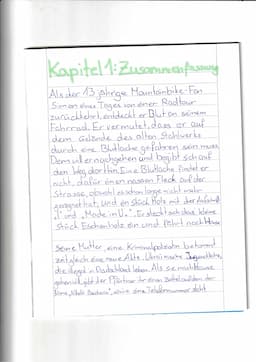 Kapitel 1: Zusammenfassung
Als der 13 jährige Mountainbike-Fan
Simon eines Tages von einer Radtour
zurückkehrt, entdeckt er Blut an seinem
Fahrrad. Er vermutet, dass er auf
dem Gelände des alten Stahlwerks
durch eine Blutlache gefahren sein muss.
Dem will er nachgehen und begibt sich auf
den Weg dorthin. Eine Blutlache findet er
nicht, dafür einen nassen Fleck auf der
Strasse, obwohl es schon lange nicht mehr
geregnet hat, und ein Stück Holz mit der Aufschrift
und "Made in U". Er steckt sich das kleine
Stück Eschenholz ein und fährt nach Hause
Seine Mutter, eine Kriminalpolizistin bekommt
zeitgleich eine neue Akte. Ukrainische Jugendliche,
die illegal in Deutschland leben. Als sie nach Hause
gehen will, gibt der Pförtner ihr einen Zettel auf dem der
Name, steht